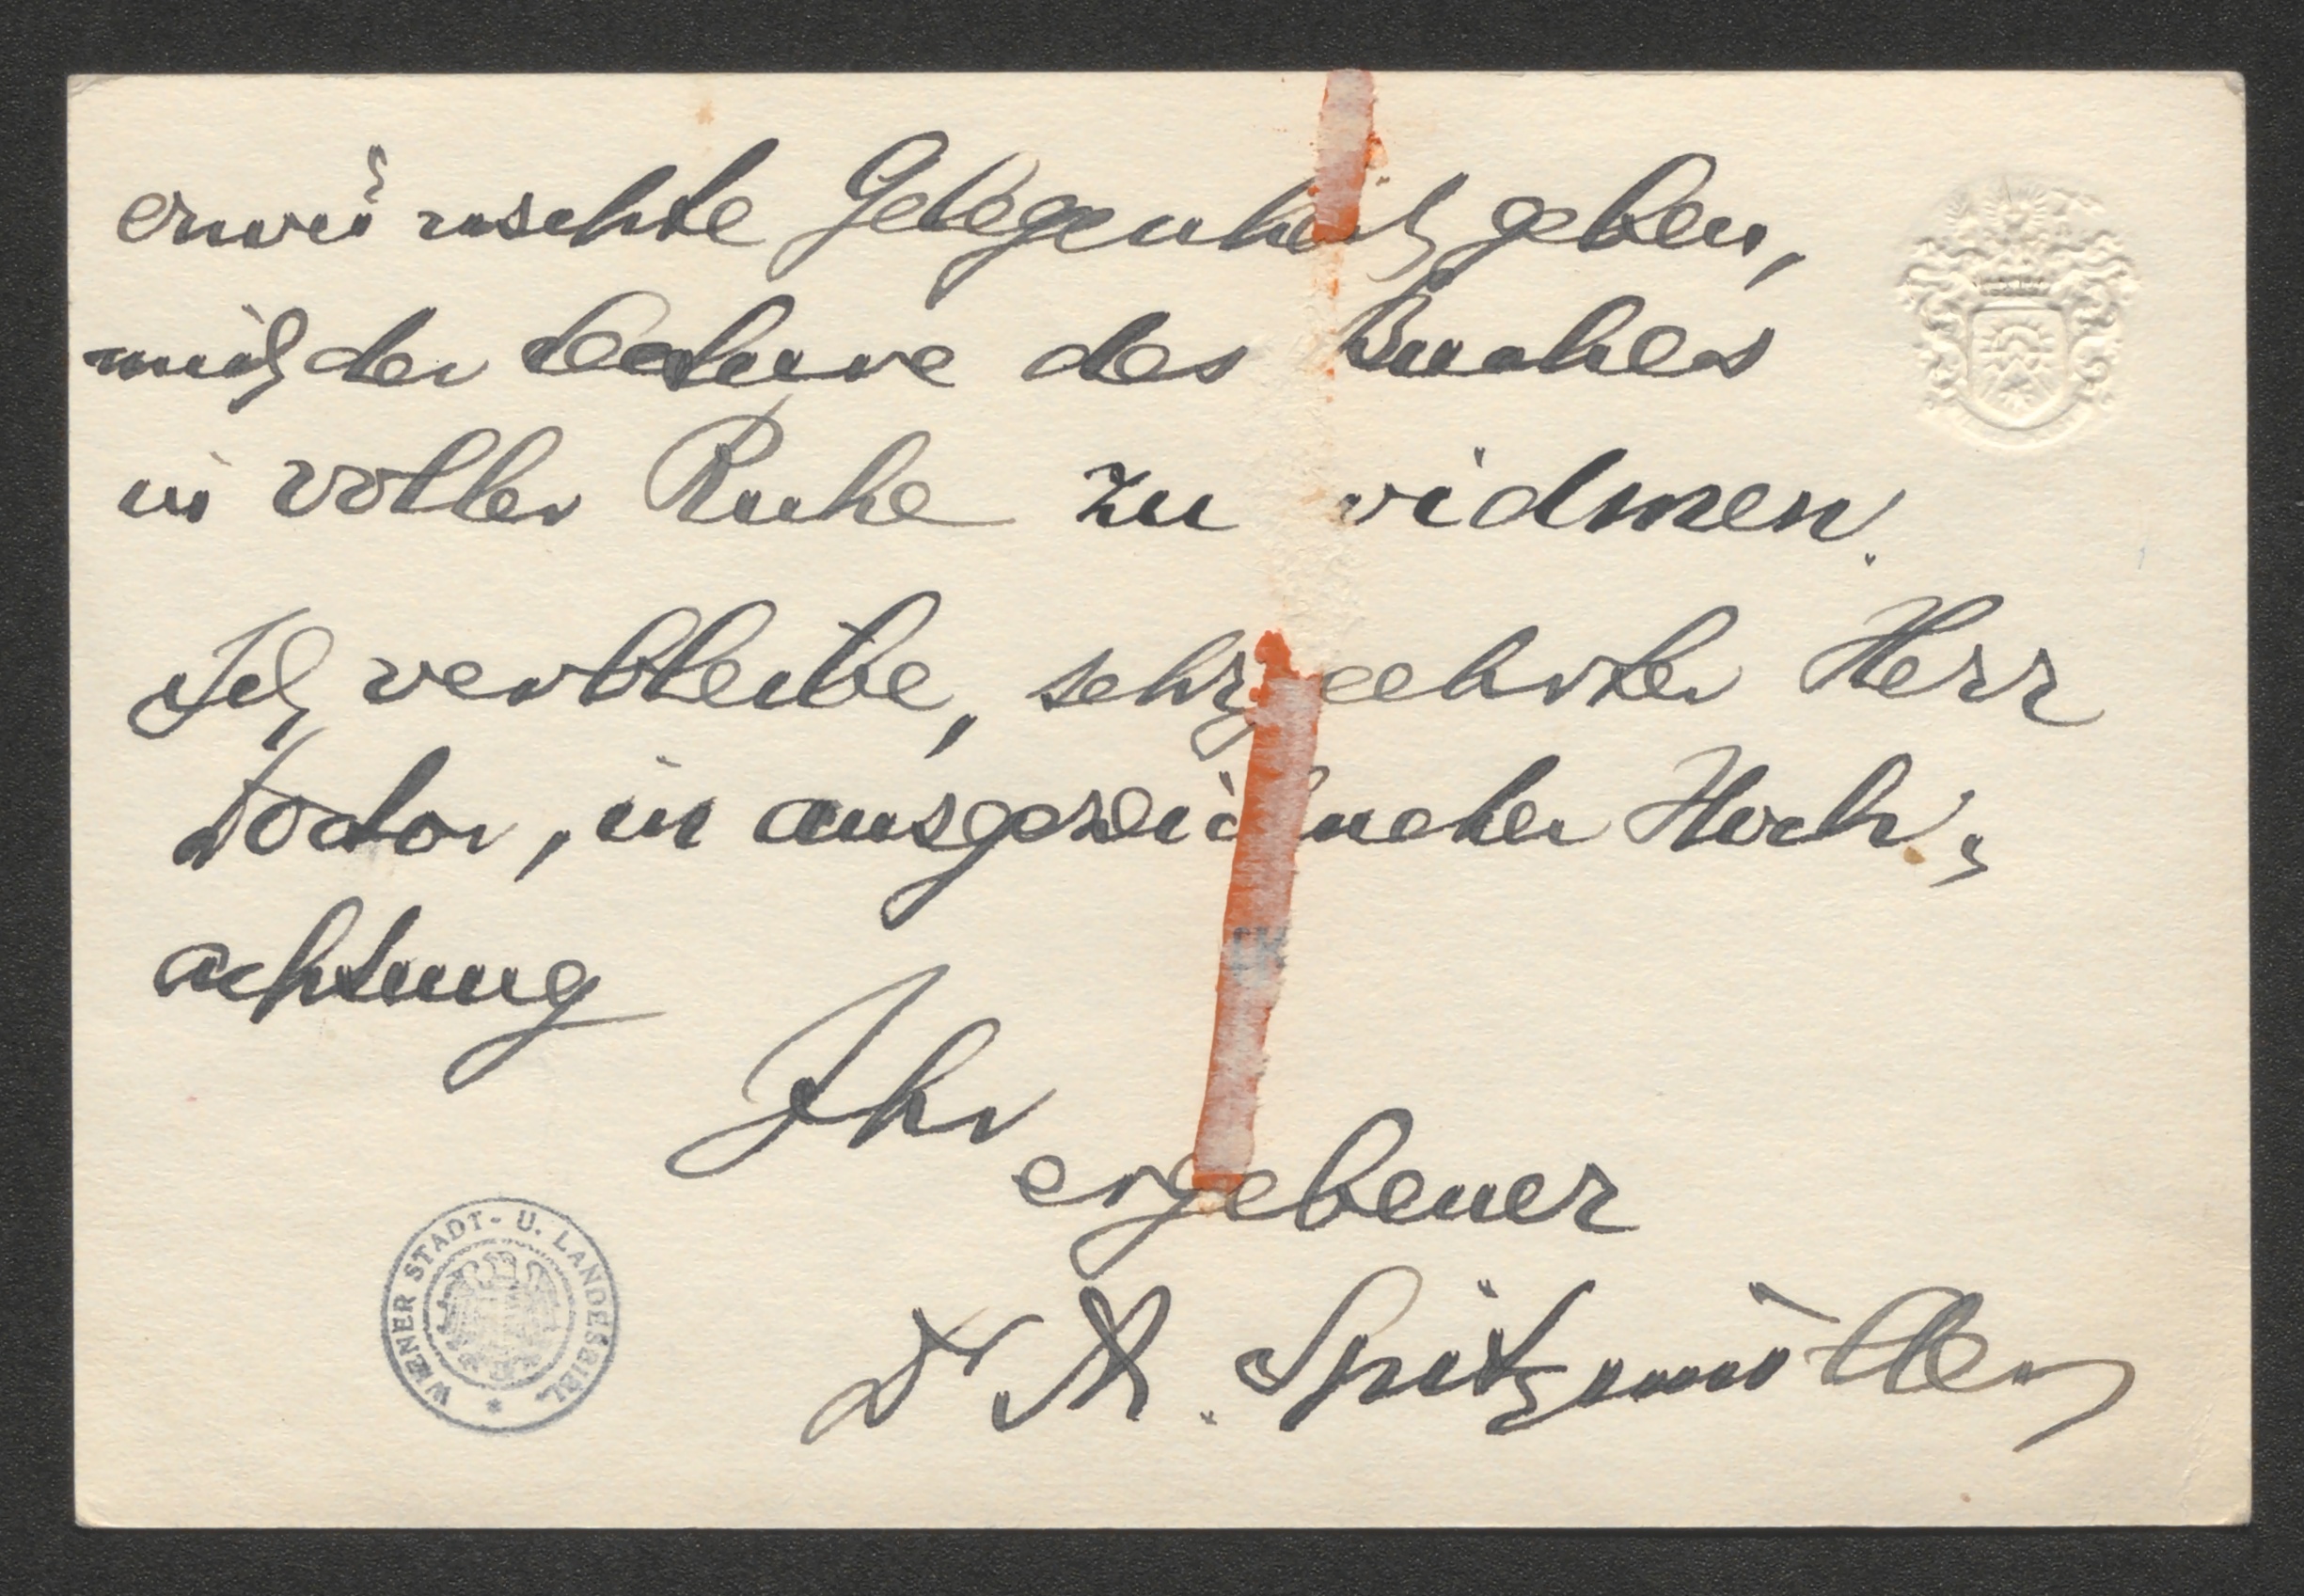 erwünschte Gelegenheit geben,
mich der Lecture des Buches
in voller Ruhe zu widmen.
Ich verbleibe, sehr geehrter Herr
Doctor, in ausgezeichneter Hoch-
achtung
Ihr
ergebener
Dr A. Spitzmüller
WIENER STADT- U. LANDESBIBL.